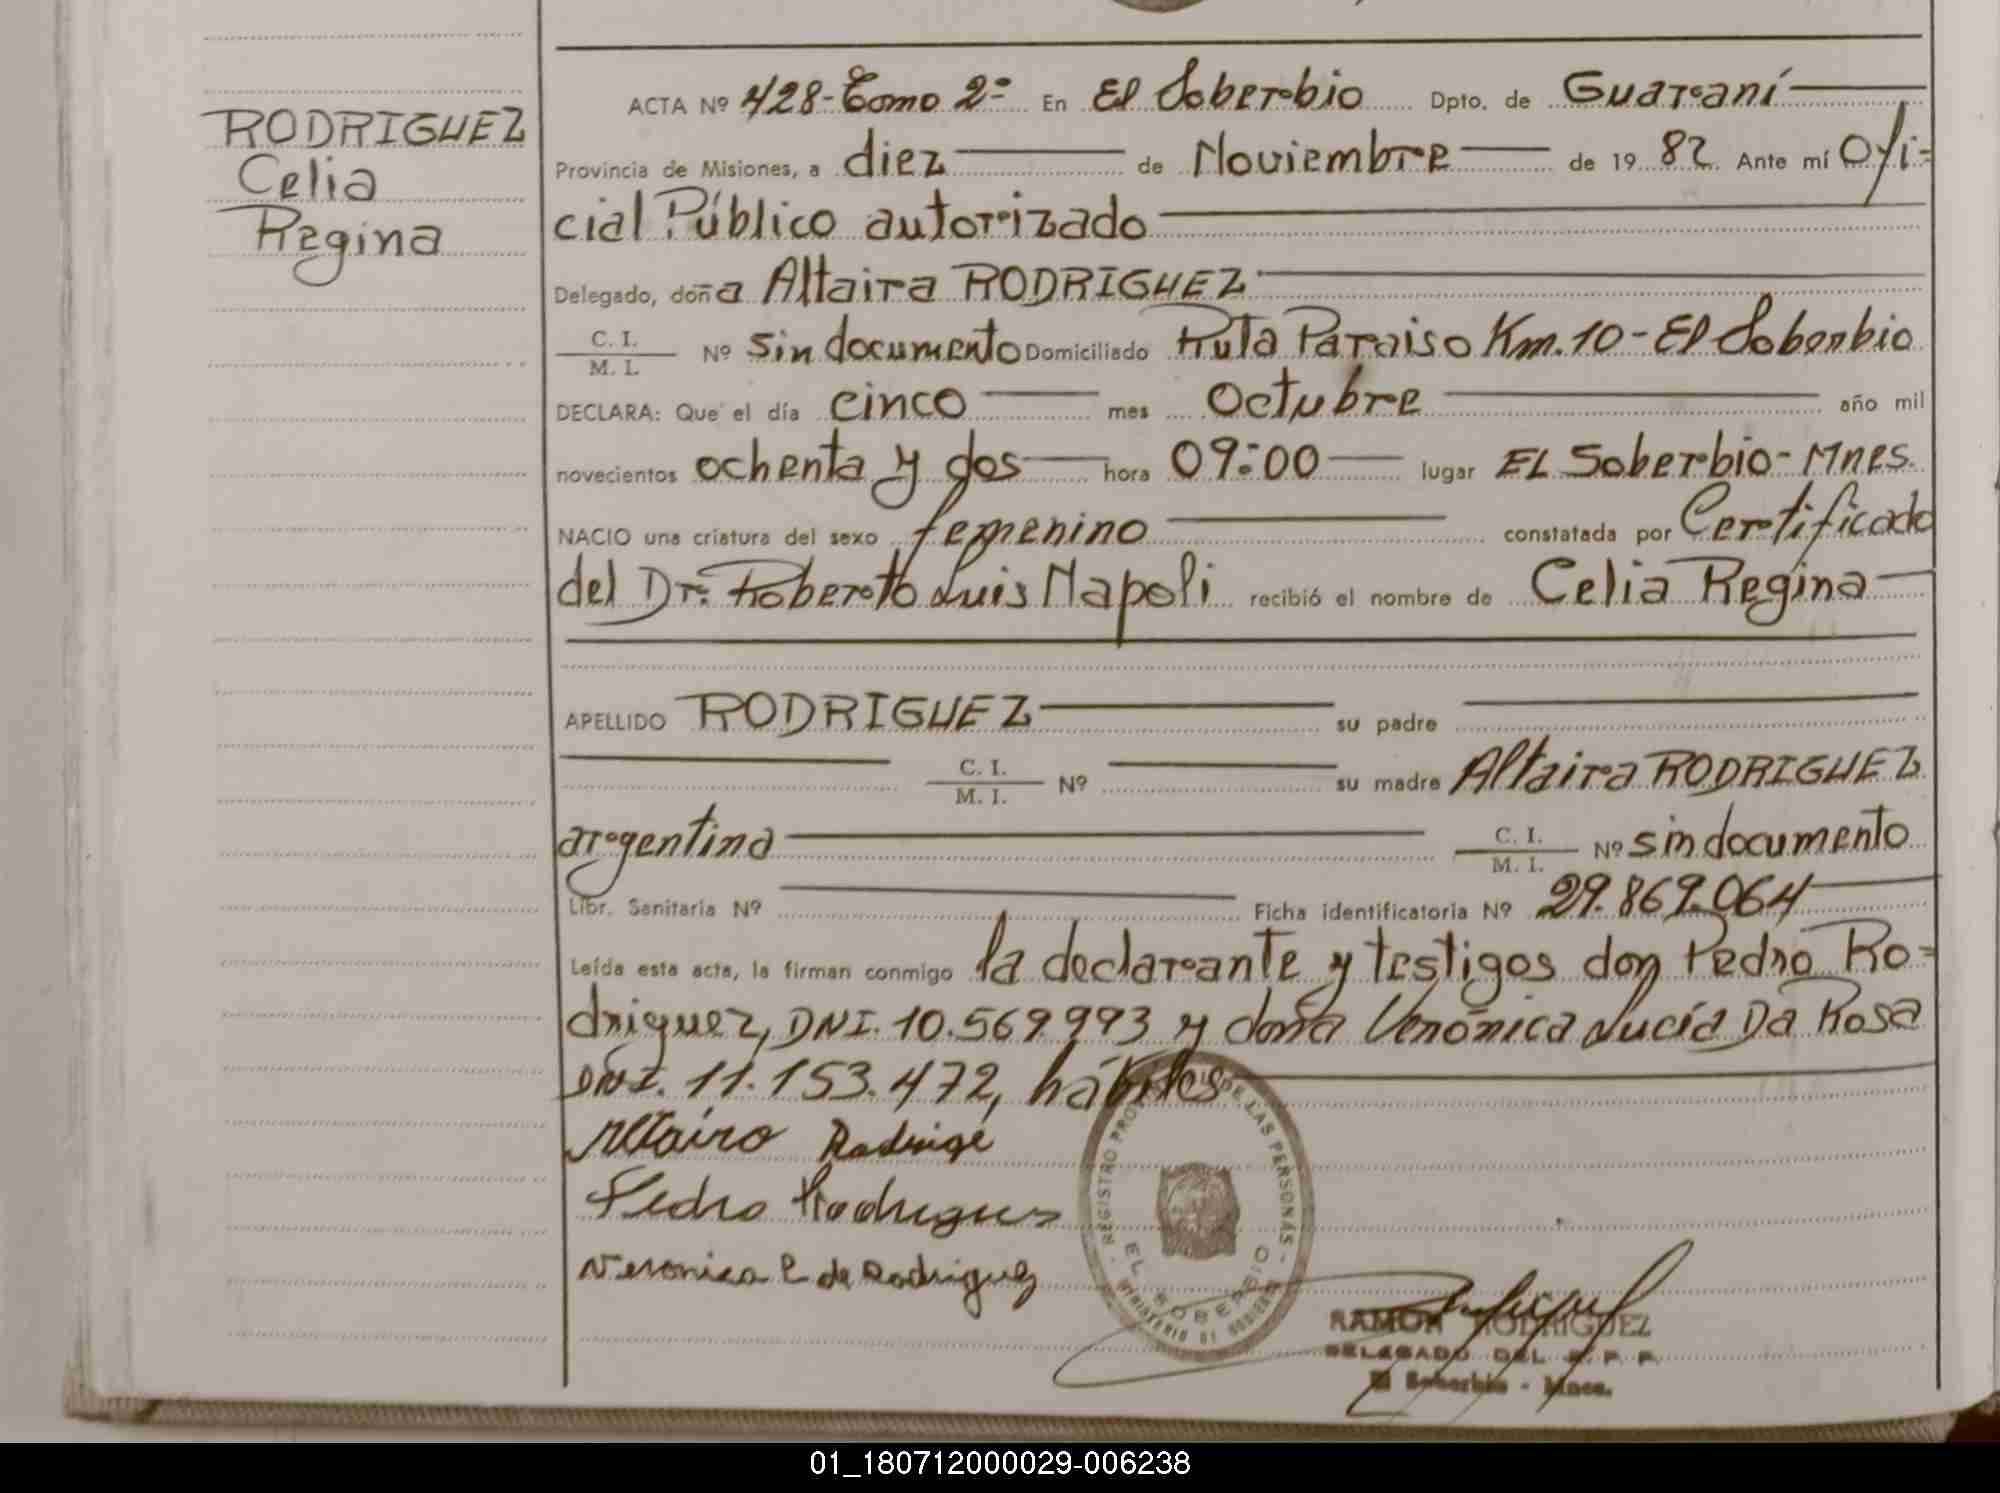 RODRIGUEZ
Celia
Regina
ACTA Nº 428-Tomo 2º En El Soberbio Dpto. de Guaraní
Provincia de Misiones, a diez de Noviembre de 19 82. Ante mí Ofi=
cial Público autorizado
Delegado, doña Altaira RODRIGUEZ
C. I. / M. I. Nº sin documento Domiciliado Ruta Paraiso Km.10-El Soberbio
DECLARA: Que el día cinco mes Octubre año mil
novecientos ochenta y dos hora 09:00 lugar EL Soberbio-Mnes.
NACIO una criatura del sexo femenino constatada por Certificado
del Dr. Roberto Luis Napoli recibió el nombre de Celia Regina
APELLIDO RODRIGUEZ su padre
C. I. / M. I. Nº su madre Altaira RODRIGUEZ
argentina C. I. / M. I. Nº sin documento
Libr. Sanitaria Nº Ficha identificatoria Nº 29.869.064
Leída esta acta, la firman conmigo la declarante y testigos don Pedro Ro=
driguez, DNI. 10.569.993 y doña Verónica Lucía Da Rosa
DNI. 11.153.472, hábiles
Altairo Rodrige
Pedro Rodriguez
Veronica L de Rodriguez
REGISTRO PROVINCIAL DE LAS PERSONAS
EL SOBERBIO
MINISTERIO DE GOBIERNO
RAMON RODRIGUEZ
DELEGADO DEL R. P. P.
El Soberbio - Mnes.
01_180712000029-006238